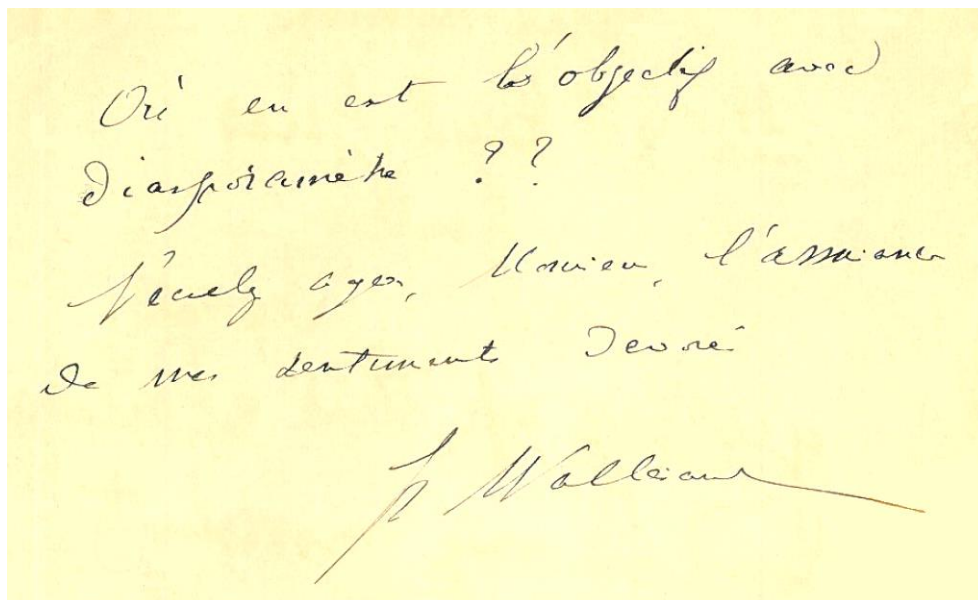 Où en est l'objectif avec
diasporamètre ??
Veuillez agréer, Monsieur, l'assurance
de mes sentiments dévoués